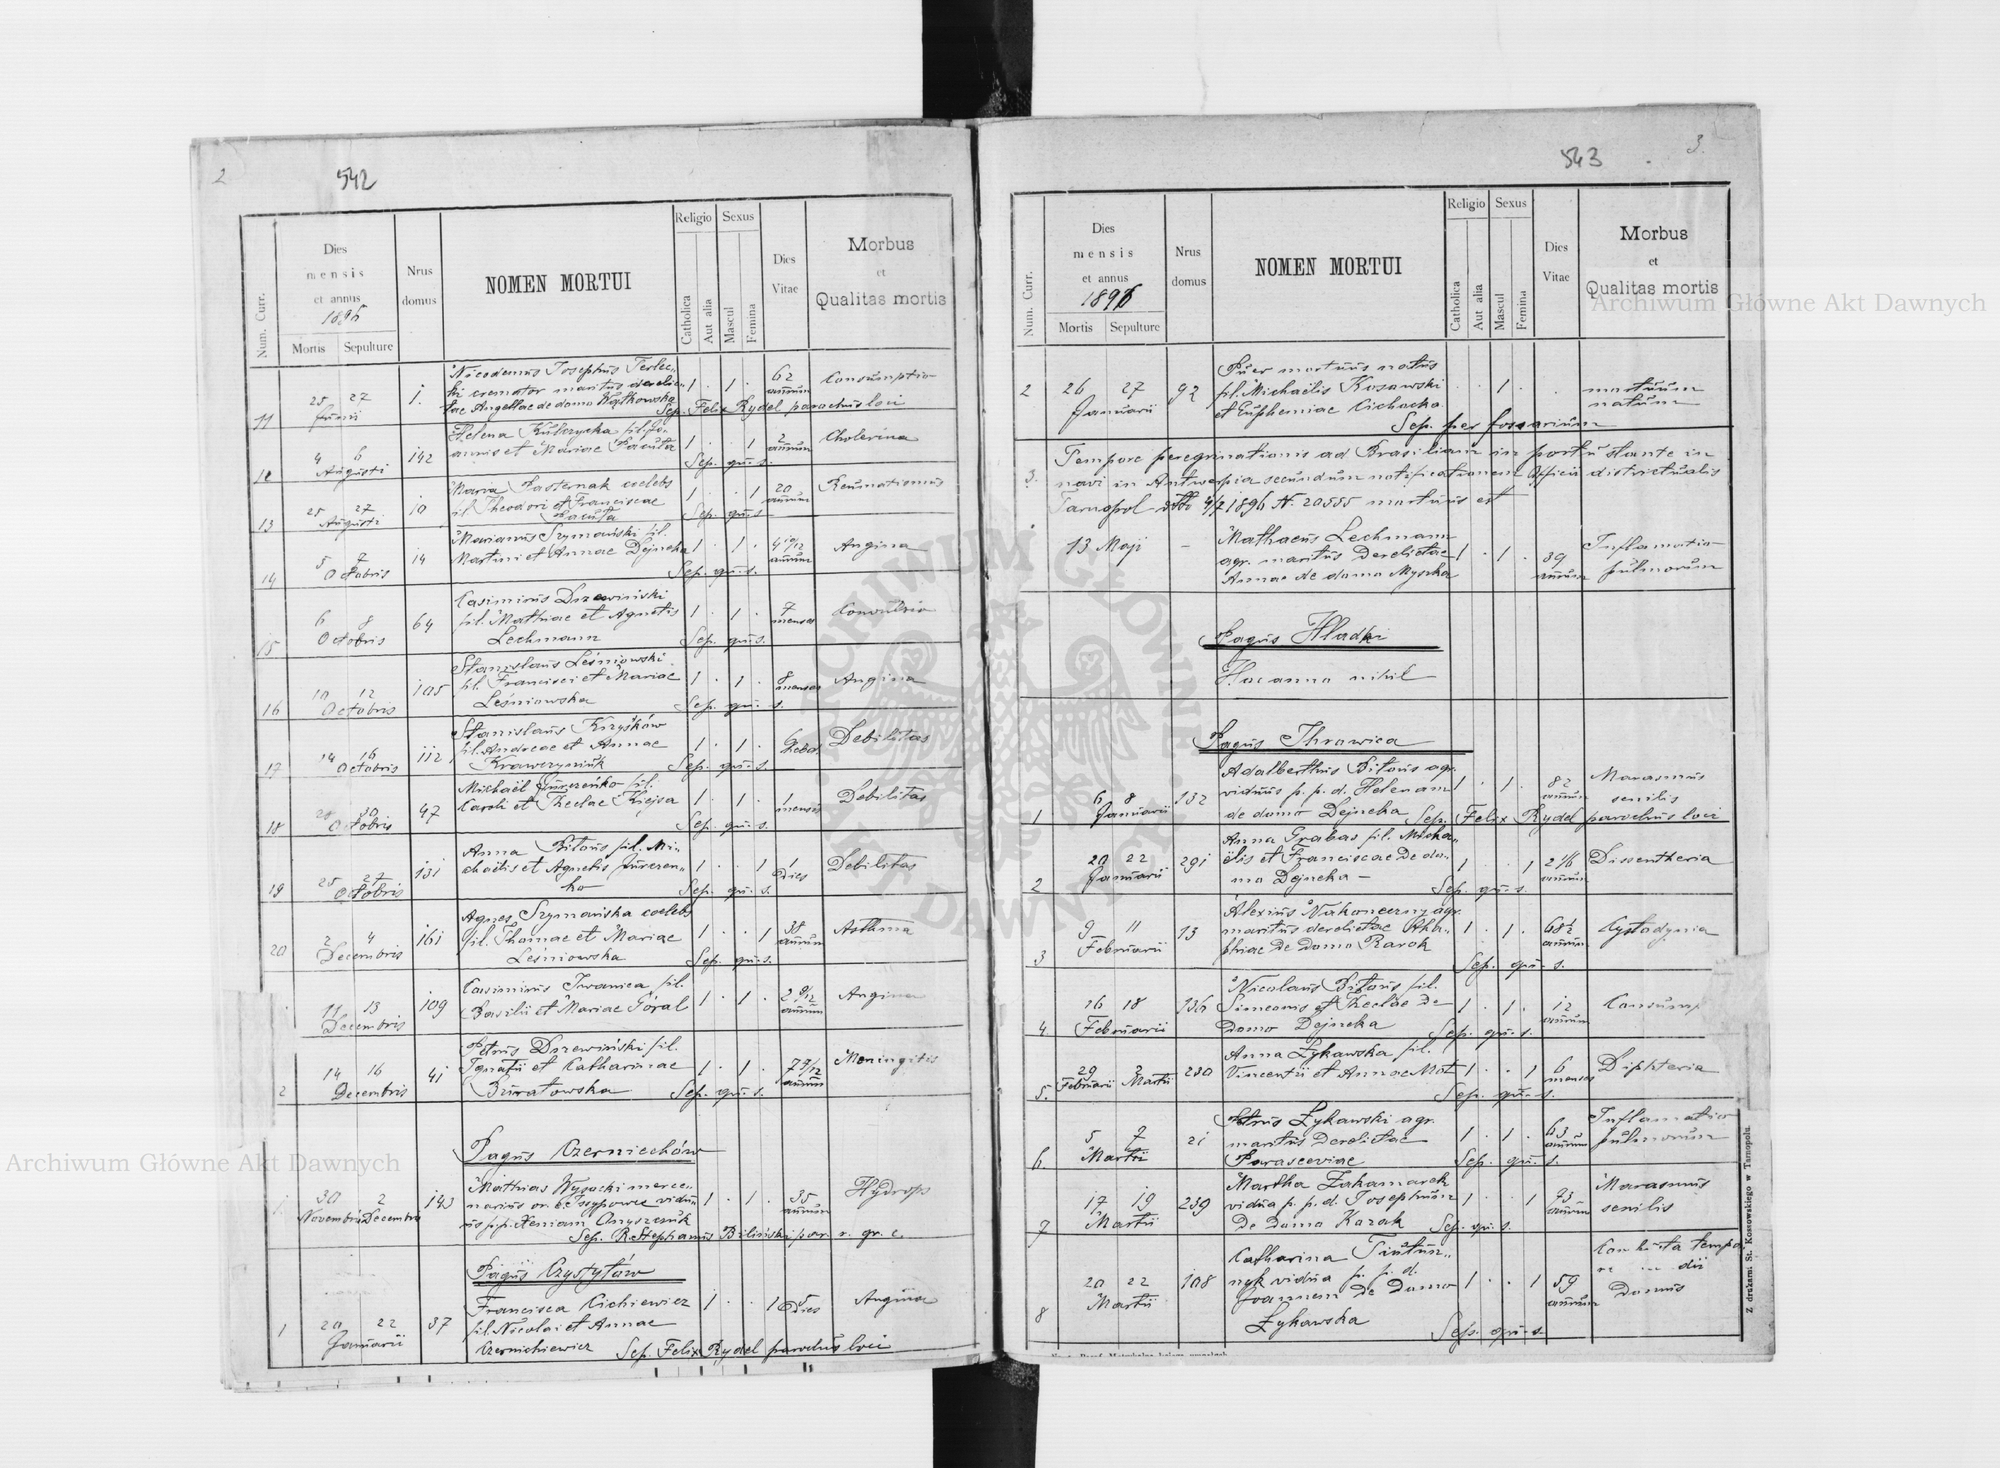 2
542
Num. Curr.
Dies
mensis
et annus
1896
Mortis Sepulture
Nrus
domus
NOMEN MORTUI
Religio
Catholica
Aut alia
Sexus
Mascul
Femina
Dies
Vitae
Morbus
et
Qualitas mortis
11 25 27 Junii 1.
Nicodemus Josephus Terlec-
ki cremator maritus derelic-
tae Angellae de domo Wątkowska
1 . 1 . 62 annum Consumptio
Sep. Felix Rydel parochus loci
12 4 6 Augusti 142
Helena Kulczycka fil. Jo-
annis et Mariae Pacuła
1 . . 1 2 annum Cholerina
Sep. qu. s.
13 25 27 Augusti 10
Maria Pasternak coelebs
fil. Theodori et Franciscae
Pacuła
1 . . 1 20 annum Reumatismus
Sep. qu. s.
14 5 7 Octobris 14
Marianus Szymański fil.
Martini et Annae Dejneka
1 . 1 . 4 10/12 annum Angina
Sep. qu. s.
15 6 8 Octobris 64
Casimirus Drzewiński
fil. Mathiae et Agnetis
Lechmann
1 . 1 . 7 menses Convulsio
Sep. qu. s.
16 10 12 Octobris 105
Stanislaus Leśniowski
fil. Francisci et Mariae
Leśniowska
1 . 1 . 8 menses Angina
Sep. qu. s.
17 14 16 Octobris 112
Stanislaus Krzyśków
fil. Andreae et Annae
Krawczyniuk
1 . 1 . 6 hebd. Debilitas
Sep. qu. s.
18 28 30 Octobris 47
Michaël Jurczeńko fil.
Caroli et Theclae Kiejsa
1 . 1 . 1 mensis Debilitas
Sep. qu. s.
19 25 27 Octobris 131
Anna Bitous fil. Mi-
chaëlis et Agnetis Jurczen-
ko
1 . . 1 1 Dies Debilitas
Sep. qu. s.
20 2 4 Decembris 161
Agnes Szymańska coelebs
fil. Thomae et Mariae
Leśniowska
1 . . 1 annum Asthma
Sep. qu. s.
11 13 Decembris 109
Casimirus Iwanica fil.
Basilii et Mariae Góral
1 . 1 . 2 9/12 annum Angina
2 14 16 Decembris 41
Petrus Drzewiński fil.
Ignatii et Catharinae
Buratowska
1 . 1 . 7 9/12 annum Meningitis
Sep. qu. s.
Pagus Czerniechów
1. 30 2 Novembris Decembris 143
Mathias Wysocki merce-
narius vidu-
us p. p. Xeniam Onyszczuk
1 . 1 . 35 annum Hydrops
Sep. R. Stephanus Biliński par. r. gr. c.
Pagus Czystyłów
1 20 22 Januarii 37
Francisca Cichiewicz
fil. Nicolai et Annae
Czernichiewicz
1 . . 1 5 Dies Angina
Sep. Felix Rydel parochus loci
543
3.
Num. Curr.
Dies
mensis
et annus
1896
Mortis Sepulture
Nrus
domus
NOMEN MORTUI
Religio
Catholica
Aut alia
Sexus
Mascul
Femina
Dies
Vitae
Morbus
et
Qualitas mortis
2 26 27 Januarii 92
Puer mortuus natus
fil. Michaëlis Kosowski
et Eupheniae Cichocka
. . 1 . . mortuum natum
Sep. per fossarium
3. Tempore peregrinationis ad Brasiliam in portu stante in
navi in Antwerpia secundum notificationem Officii districtualis
Tarnopol ddto 4/7 1896 N. 20555 mortuus est
13 Maji –
Mathaeus Lechmann
agr. maritus derelictae
Annae de domo Myszka
1 . 1 . 39 annum Inflamatio pulmorum
Pagus Hladki
Hoc anno nihil
Pagus Ihrowica
1 6 8 Januarii 132
Adalberthus Bitous agr.
viduus p. p. d. Helenam
de domo Dejneka
1 . 1 . 82 annum Marasmus senilis
Sep. Felix Rydel parochus loci
2 20 22 Januarii 291
Anna Grabas fil. Micha-
ëlis et Franciscae de do-
mo Dejneka –
1 . . 1 2 1/6 annum Dissentheria
Sep. qu. s.
3 9 11 Februarii 13
Alexius Nakoneczny agr.
maritus derelictae Aha-
phiae de domo Rarok
1 . 1 . 68 1/2 annum Cystodynia
Sep. qu. s.
4 16 18 Februarii 136
Nicolaus Bitous fil.
Simeonis et Theclae de
domo Dejneka
1 . 1 . 12 annum Consump
Sep. qu. s.
5. 29 2 Februarii Martii 280
Anna Łykawska fil.
Vincentii et Annae Mot
1 . . 1 6 menses Diphteria
Sep. qu. s.
6 5 7 Martii 21
Petrus Łykawski agr.
maritus derelictae
Parasceviae
1 . 1 . 63 annum Inflamatio pulmorum
Sep. qu. s.
7 17 19 Martii 239
Martha Zakamarek
vidua p. p. d. Josephum
de domo Kozak
1 . . 1 73 annum Marasmus senilis
Sep. qu. s.
8 20 22 Martii 108
Catharina Tiutiun-
nyk vidua p. p. d.
Joannem de domo
Łykawska
1 . . 1 59 annum Combusta tempo-
domus
Sep. qu. s.
Z drukarni St. Kossowskiego w Tarnopolu.
Archiwum Główne Akt Dawnych
Archiwum Główne Akt Dawnych
ARCHIWUM GŁÓWNE AKT DAWNYCH